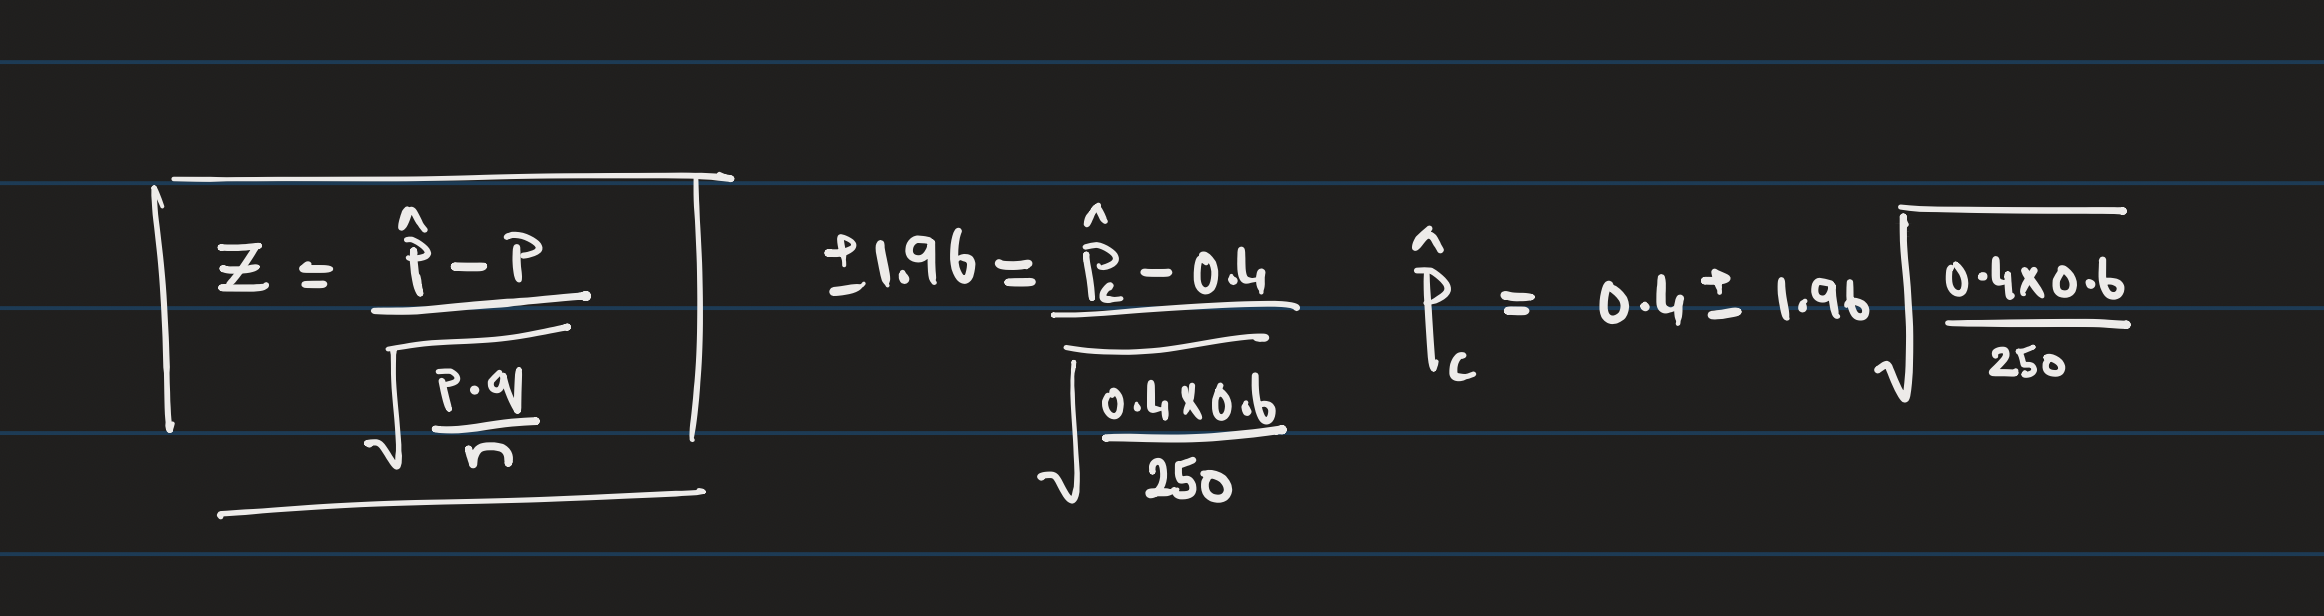 Z = (p̂ - P) / √(P·q / n)
±1.96 = (p̂c - 0.4) / √(0.4×0.6 / 250)
p̂c = 0.4 ± 1.96 √(0.4×0.6 / 250)